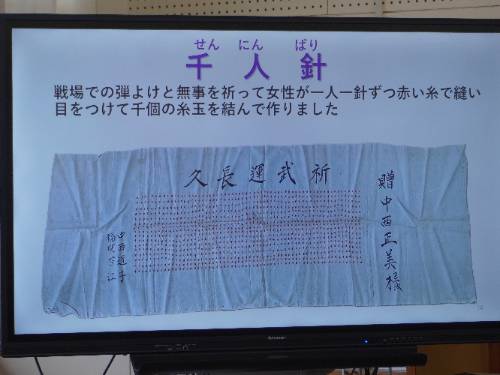 せん にん ばり
千人針
戦場での弾よけと無事を祈って女性が一人一針ずつ赤い糸で縫い
目をつけて千個の糸玉を結んで作りました
祈武運長久
贈中西正美様